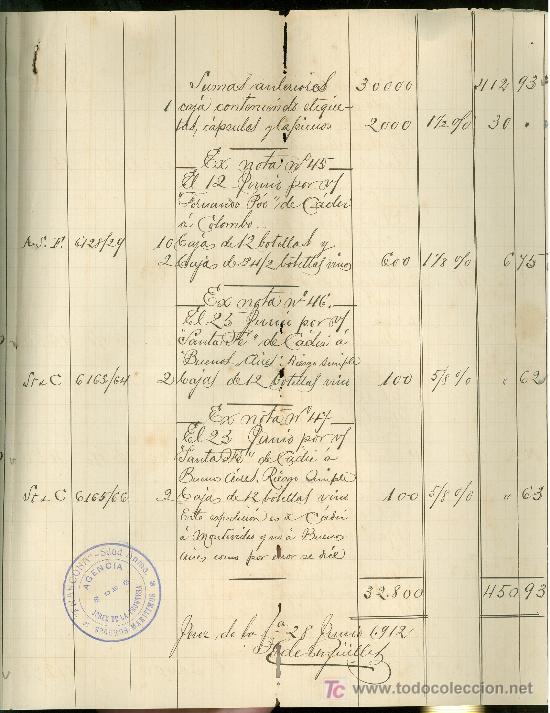 Sumas anteriores 30000 412 93
1 caja conteniendo etique-
tas, cápsulas y 2000 1 1/2 % 30 .
Ex nota nº 45
El 12 Junio por v/
"Fernando Póo" de Cádiz
á Colombo.
6128/29 10 Cajas de 12 botellas y
2 Cajas de 24/2 botellas vino 600 1 1/8 % 6 75
Ex nota nº 46.
El 23 Junio por v/
"Santa Fé" de Cádiz á
Buenos Aires. Riesgo simple
St & C 6163/64 2 cajas de 12 botellas vino 100 5/8 % " 62
Ex nota nº 47
El 23 Junio por v/
"Santa Fé" de Cádiz á
Buenos Aires, Riesgo Simple
St & C 6165/66 2 Cajas de 12 botellas vino 100 5/8 % " 63
Esta expedición es de Cádiz
á Montevideo y no á Buenos
Aires como por error se dice
32.800 450 93
Jerez de la Fra 28 Junio 1912
AGENCIA
JEREZ DE LA FRONTERA
SEGUROS MARITIMOS
TC www.todocoleccion.net